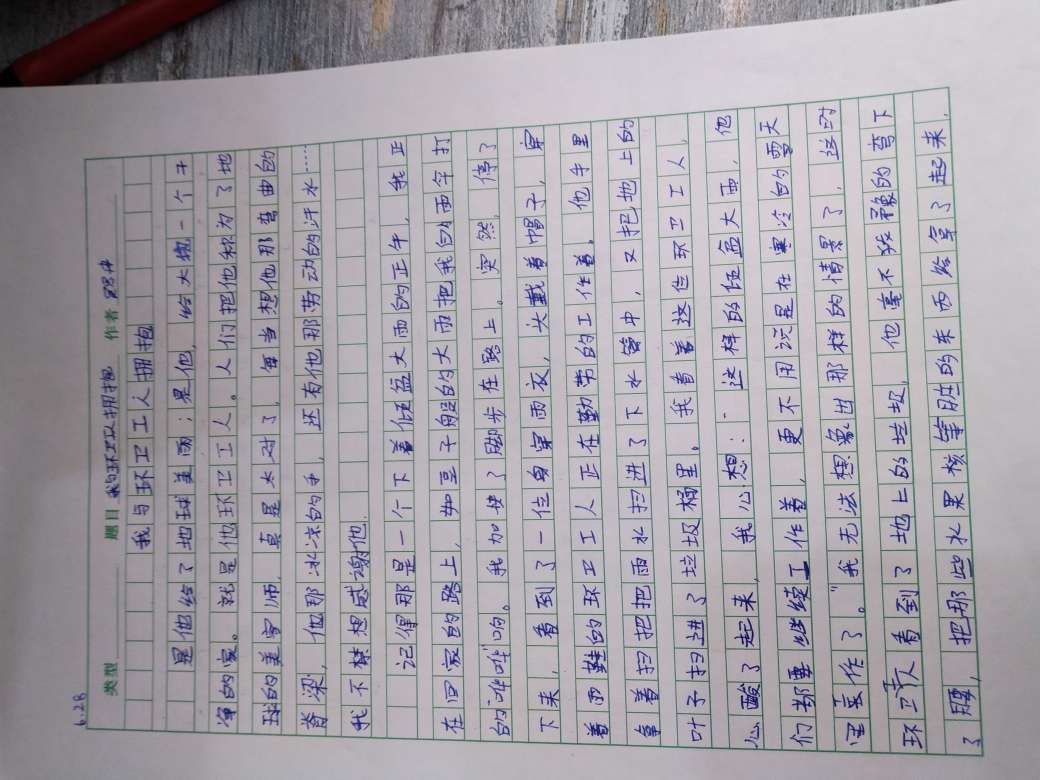 6.28
类型 题目 我与环卫工人拥抱 作者
我与环卫工人拥抱
是他给了地球美丽；是他，给大地一个干
净的家。就是他环卫工人。人们把他称为了地
球的美容师，真是太对了，每当想他那弯曲的
脊梁，他那冰冷的手，还有他那劳动的汗水……
我不禁想感谢他。
记得那是一个下着倾盆大雨的正午，我正
在回家的路上，如豆子般的大雨把我的雨伞打
的“哗哗”响。我加快了脚步在路上。突然，停了
下来，看到了一位身穿雨衣，头戴着帽子，穿
着雨鞋的环卫工人正在勤劳的工作着。他手里
拿着扫把把雨水扫进了下水管中，又把地上的
叶子扫进了垃圾桶里。我看着这位环卫工人，
心酸了起来，我心想：“这样的倾盆大雨，他
们都要继续工作着，更不用说是在寒冷的雪天
里工作了。”我无法想象出那样的情景了，这时
环卫工人看到了地上的垃圾，他毫不犹豫的弯下
了腰，把那些水果核等脏的东西给拿了起来，